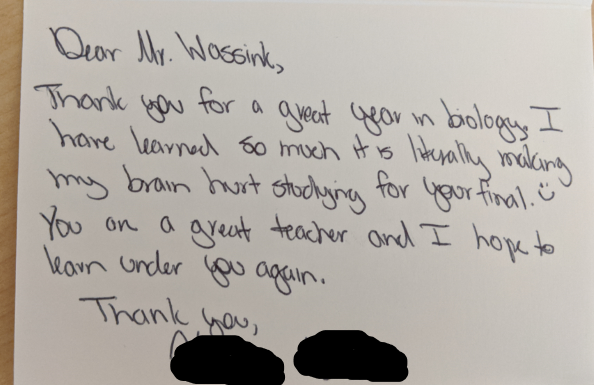 Dear Mr. Wassink,
Thank you for a great year in biology, I
have learned so much it is literally making
my brain hurt studying for your final. :)
You are a great teacher and I hope to
learn under you again.
Thank you,